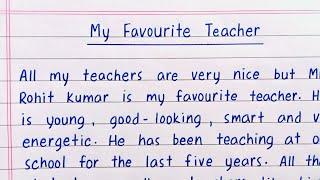 My Favourite Teacher
All my teachers are very nice but M
Rohit Kumar is my favourite teacher. H
is young, good-looking, smart and v
energetic. He has been teaching at o
school for the last five years. All th